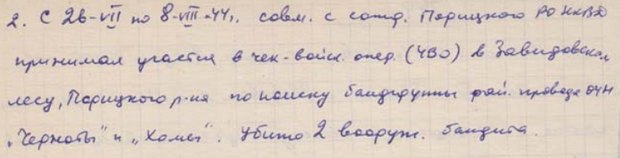 2. С 26-VII по 8-VIII-44г. совм. с сотр. Парицкого РО НКВД
принимал участие в чек-войск. опер. (ЧВО) в Завидовском
лесу, Парицкого р-на по поиску бандгруппы
"Черноты" и "Хомы". Убито 2 вооруж. бандита.